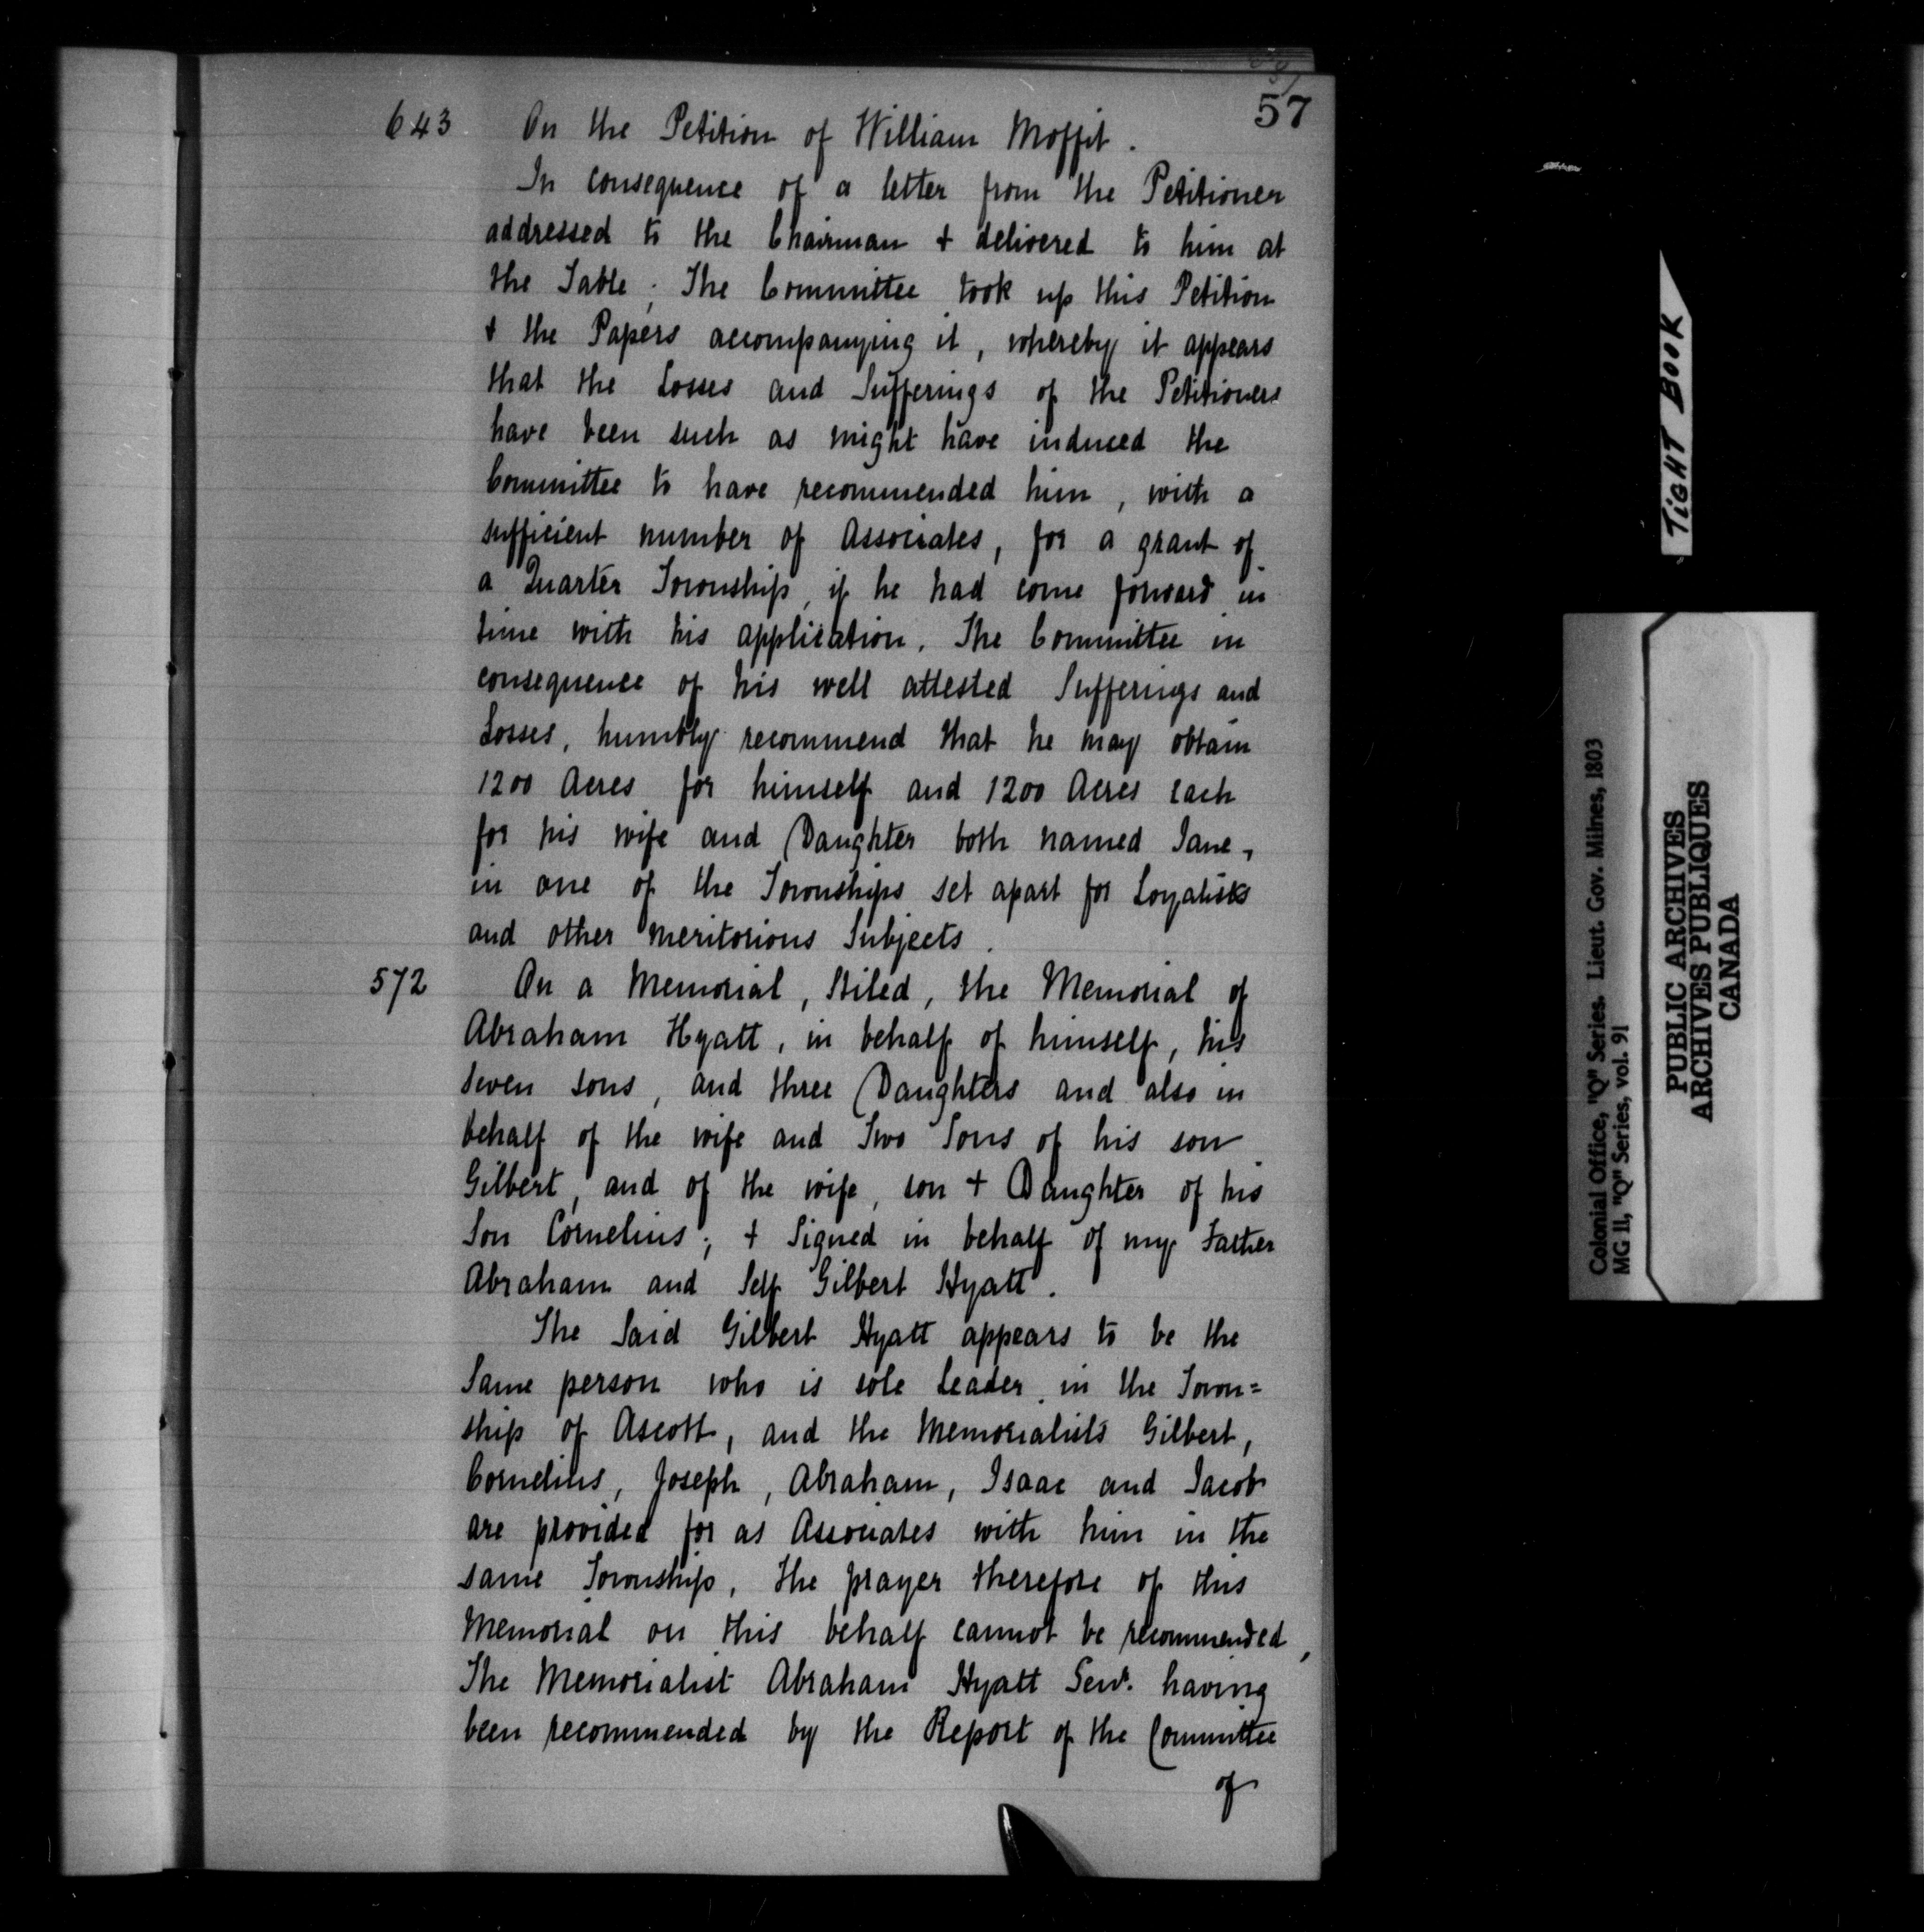 57
643 On the Petition of William Moffit.
In consequence of a letter from the Petitioner
addressed to the Chairman + delivered to him at
the Table; The Committee took up this Petition
+ the Papers accompanying it, whereby it appears
that the Losses and Sufferings of the Petitioners
have been such as might have induced the
Committee to have recommended him, with a
sufficient number of Associates, for a grant of
a Quarter Township, if he had come forward in
time with his application. The Committee in
consequence of his well attested Sufferings and
Losses, humbly recommend that he may obtain
1200 Acres for himself and 1200 Acres each
for his wife and Daughter both named Jane,
in one of the Townships set apart for Loyalists
and other meritorious Subjects.
572 On a Memorial, Stiled, the Memorial of
Abraham Hyatt, in behalf of himself, his
seven sons, and three Daughters and also in
behalf of the wife and Two Sons of his son
Gilbert, and of the wife, son + Daughter of his
Son Cornelius; + Signed in behalf of my Father
Abraham and Self Gilbert Hyatt.
The Said Gilbert Hyatt appears to be the
Same person who is sole Leader in the Town=
ship of Ascott, and the Memorialists Gilbert,
Cornelius, Joseph, Abraham, Isaac and Jacob
are provided for as Associates with him in the
same Township, the prayer therefore of this
Memorial on this behalf cannot be recommended,
The Memorialist Abraham Hyatt Senr. having
been recommended by the Report of the Committee
of
TIGHT BOOK
Colonial Office, "Q" Series. Lieut. Gov. Milnes, 1803
MG 11, "Q" Series, vol. 91
PUBLIC ARCHIVES
ARCHIVES PUBLIQUES
CANADA